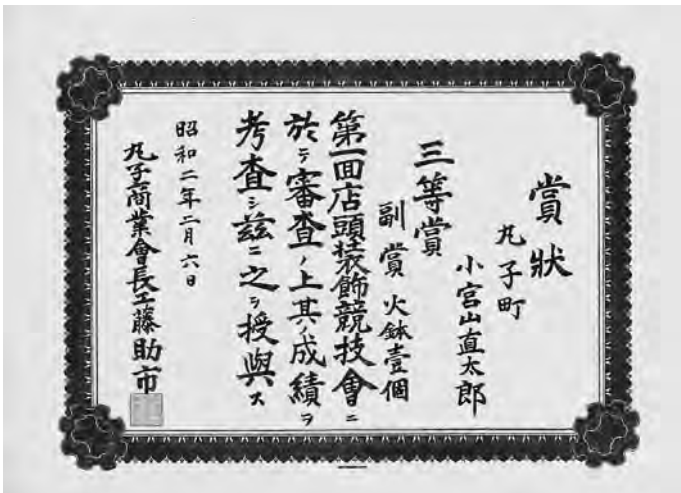 賞狀
丸子町
小宮山直太郎
三等賞
副賞 火鉢壹個
第一回店頭裝飾競技會ニ
於テ審査ノ上其ノ成績ヲ
考査シ茲ニ之ヲ授與ス
昭和二年二月六日
丸子商業會長工藤助市